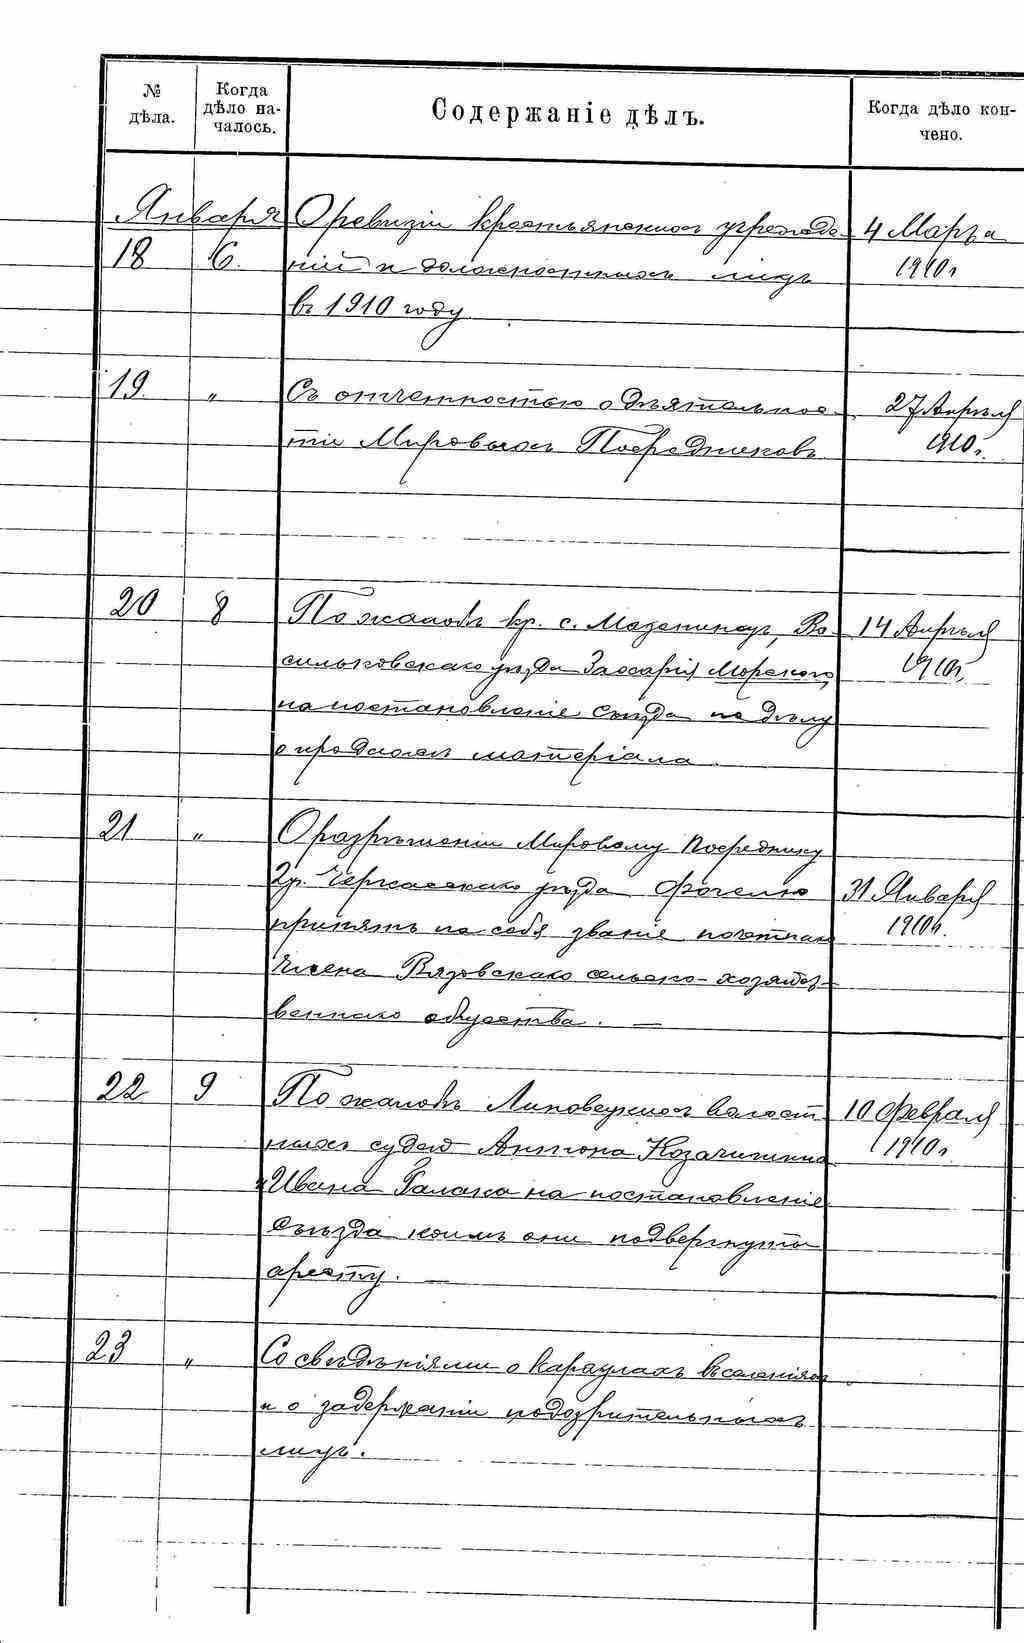 № дѣла.
Когда дѣло на-
чалось.
Содержаніе дѣлъ.
Когда дѣло кон-
чено.
Января О ревизіи крестьянскихъ учрежде- 4 Марта
18 6. ній и должностныхъ лицъ 1910 г
въ 1910 году
19. „ Съ отчетностью о дѣятельнос- 27 Апрѣля
тіи Мировыхъ Посредниковъ 1910 г.
20 8 По жалобѣ кр. с. Мазепинецъ, Ва- 14 Апрѣля
сильковскаго уѣзда Морского, 1910 г.
на постановленіе Съѣзда по дѣлу
о продажѣ матеріала.
21 „ О разрѣшеніи Мировому Посреднику
2 у. Черкасскаго уѣзда 31 Января
принять на себя званіе почетнаго 1910 г.
Члена Вязовскаго сельско-хозяйст-
веннаго общества. —
22 9 По жалобѣ Липовецкихъ волост- 10 Февраля
ныхъ судей Антона Козачишина 1910 г.
и Ивана Галака на постановленіе
Съѣзда коимъ они подвергнуты
аресту. —
23 „ Со свѣдѣніями о караулахъ въ селеніяхъ
и о задержаніи подозрительныхъ
лицъ.